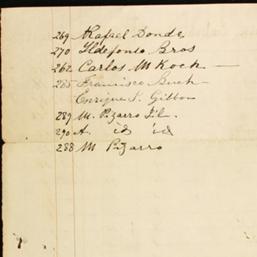 269 Rafael Donde
270 Ildefonso Bros
262 Carlos M Koch —
285 Francisco Buch —
Enrique S. Gibbon
289 M. Pizarro
290 A id id
288 M Pizarro